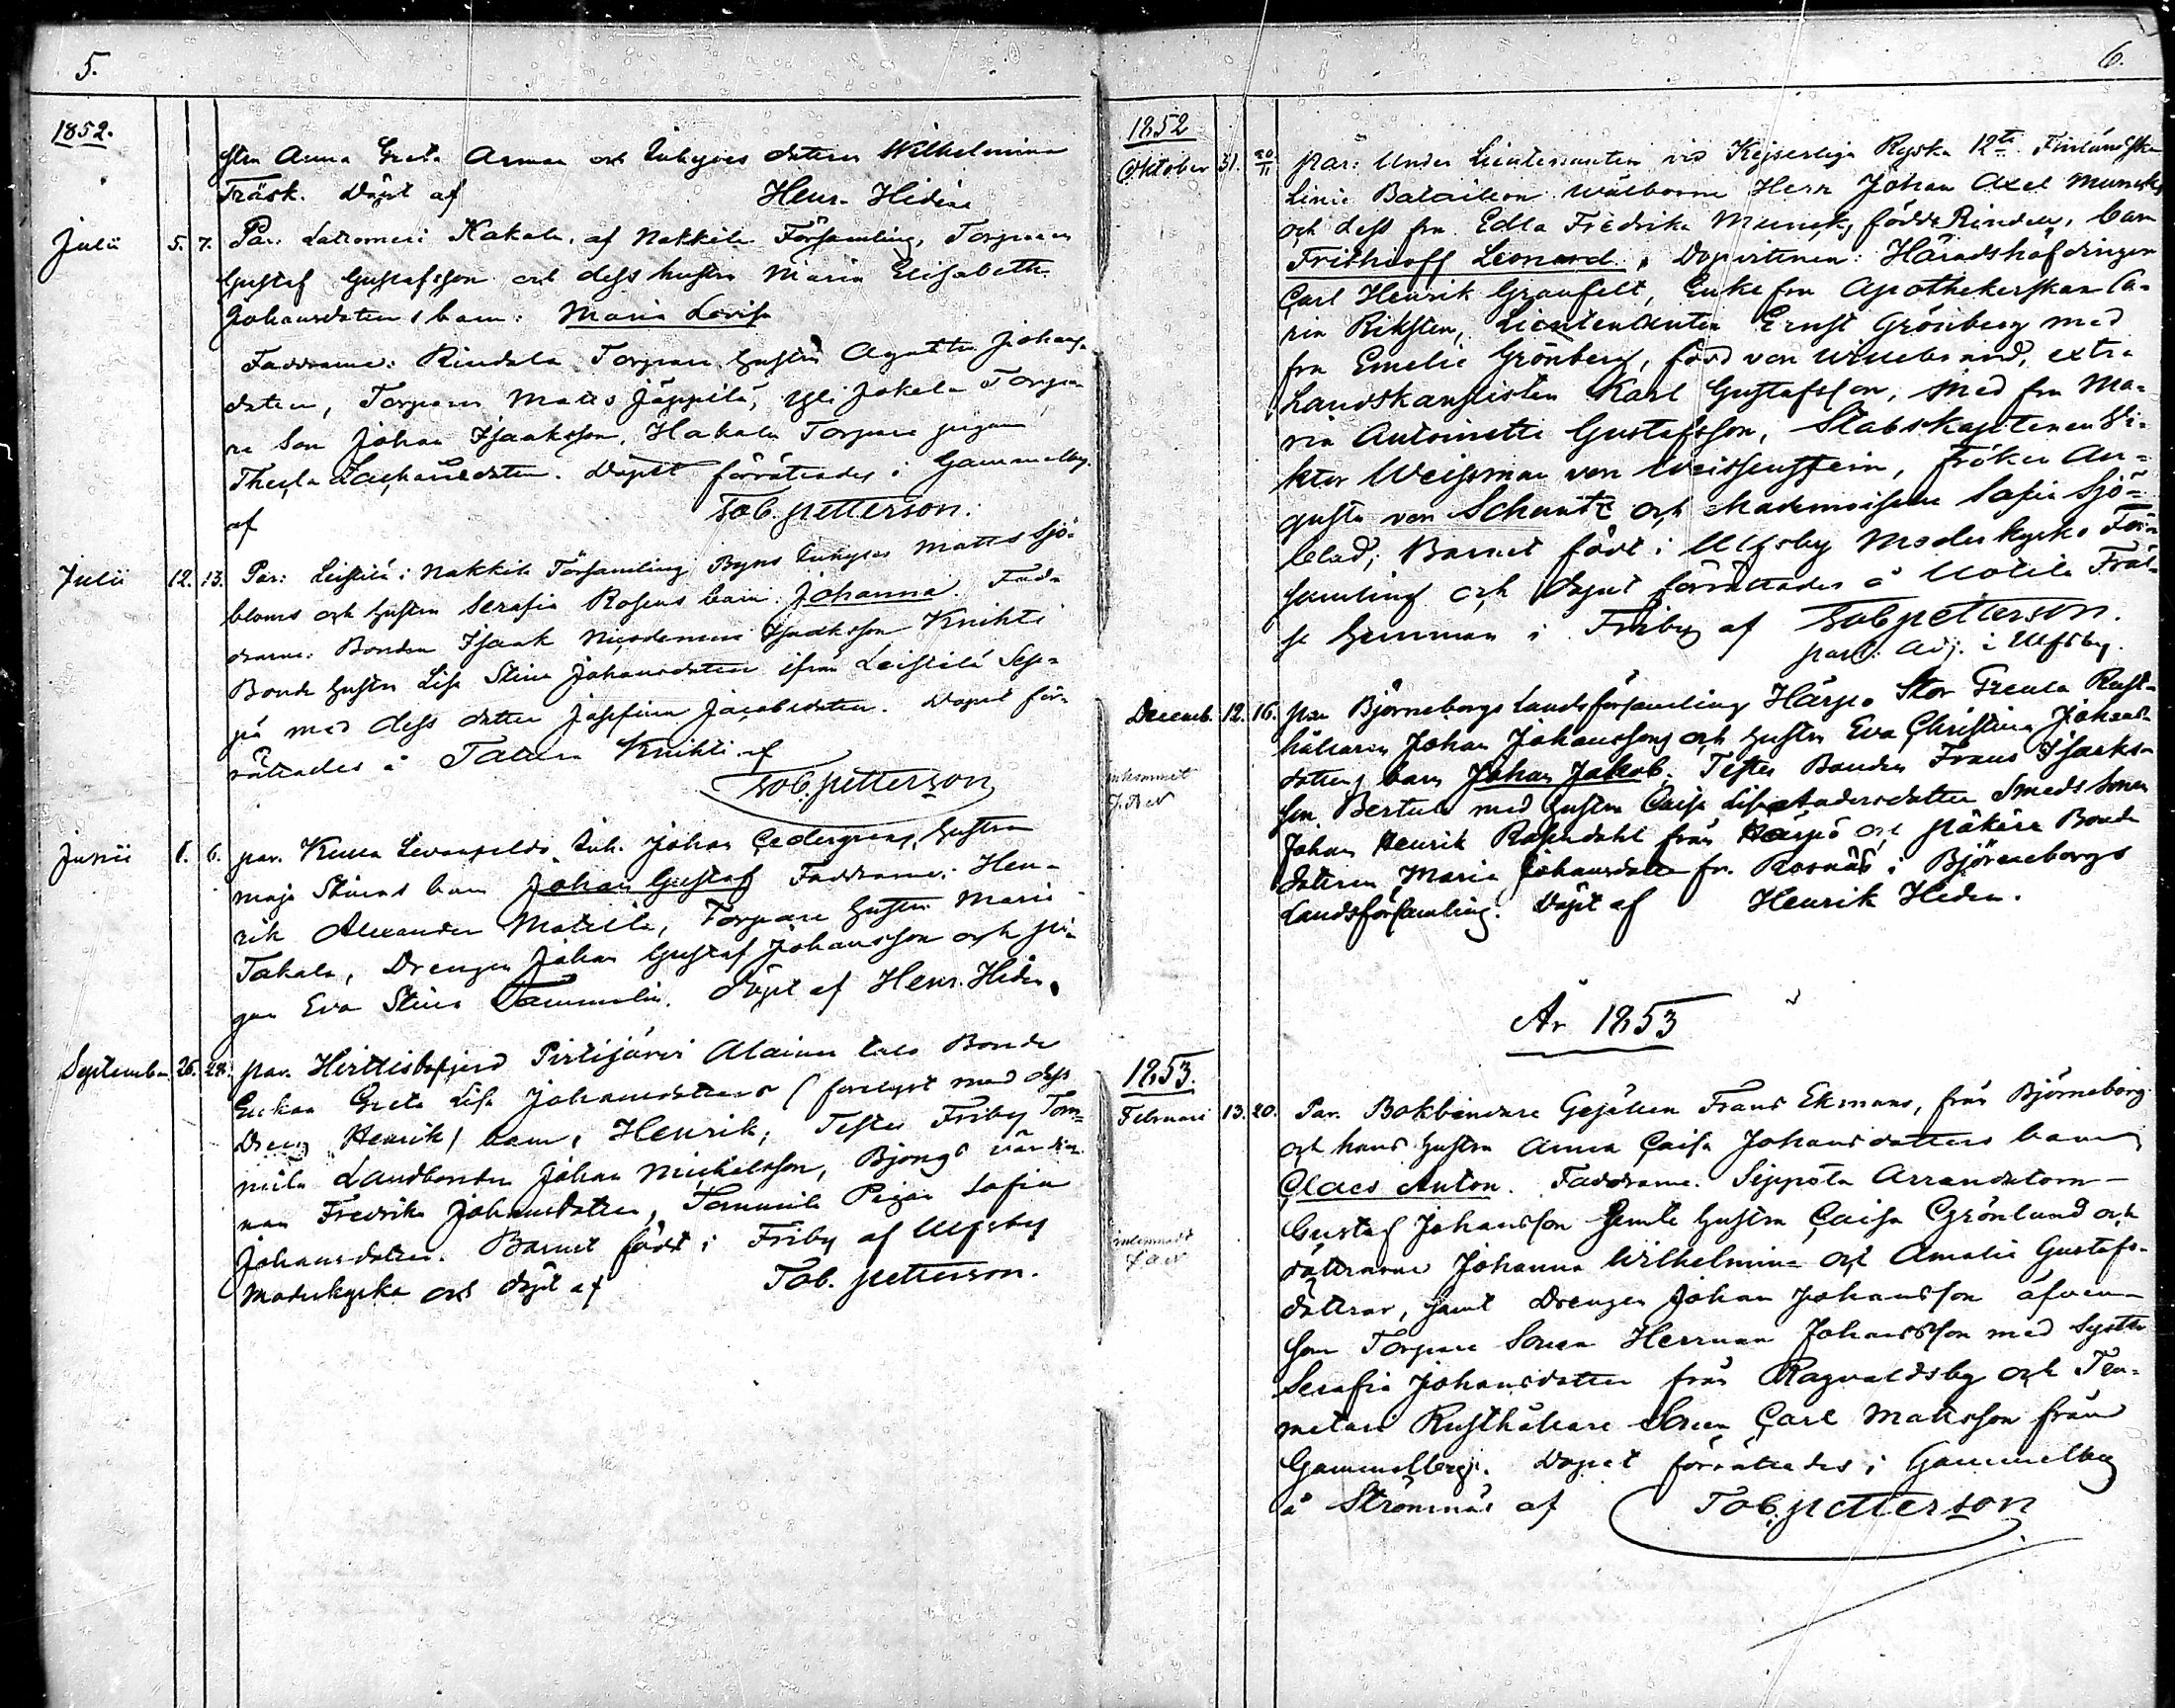 5.
1852.
Anna Greta och dottern Wilhelmina
Träsk. Döpt af Henr. Hidén
Julii 5. 7. Par. Kakala, af Nakkila Församling, Torparen
Gustaf Gustafsson och dess hustru Maria Elisabeth
Johansdotters barn: Maria Lovisa
Faddrarne: Rindala Torpare hustru Agatha Johans-
dotter, Torparen Matts Jäppilä, Yli Jokela Torpa-
re Son Johan Isaaksson, Hakala Torpare pigan
Thecla Zachariedotter. Döpet förrättades i Gammelby
af Tob. Petterson.
Julii 12. 13. Par: Leistilä i Nakkila Församling Byns Inhyses Matts Sjö-
bloms och hustru Serafia Rosens barn Johanna. Fadd-
rarne: Bonden Isaak Nicodemus Isaaksson Knihti
Bonde hustru Lisa Stina Johansdotter ifrån Leistilä Sep-
pä med dess dotter Josefina Jacobsdotter. Döpet för-
rättades å Tattara Knihti af
Tob. Petterson
Junii 1. 6. par. Inh. Johan Cedergrens, hustrun
Maja Stinas barn Johan Gustaf Faddrarne: Hen-
rik Alexander Mattila, Torpare hustru Maria
Takala, Drengen Johan Gustaf Johansson och pi-
gan Eva Stina Tammelin. Döpt af Henr. Hidén.
September 26. 28. par. Pirtijärvi Alainen Bonde
Enkan Greta Lisa Johansdotters (förelyst med dess
Dreng Henrik) barn, Henrik; Testes Friby Tom-
mila Landbonden Johan Michelsson, Bjongs värdin-
nan Fredrika Johansdotter, Tommila Pigan Sofia
Johansdotter. Barnet födt i Friby af Ulfsby
Moderkyrka och döpt af Tob. Petterson.
6.
1852
Oktober 31. 20/11 par: Under Lieutenanten vid Kejserliga Ryska 12te Finländska
Linie Batailleon Wälborne Herr Johan Axel Muncks
och dess fru Edla Fredrika Munck, född Rindell, barn
Frithioff Leonard. Dopvittnen: Häradshöfdingen
Carl Henrik Granfelt, Enkefru Apothekerskan Ca-
rin Riksten, Lieutenanten Ernst Grönberg med
fru Emelie Grönberg, född von Willebrand, extra
Landskanslisten Karl Gustafsson, med fru Ma-
ria Antoinette Gustafsson, Stabskapitenen Vi-
ktor Weissman von Weissenstein, Fröken Au-
gusta von Schantz och Mademoiselle Sofia Sjö-
blad; Barnet födt i Ulfsby Moderkyrko För-
samling och Döpet förrättades å Uotila Fräl-
se hemman i Friby af Tob Petterson.
past. Adj. i Ulfsby.
Decemb. 12. 16. par Björneborgs Landsförsamling Härpo Stor Freula Rust-
hållaren Johan Johanssons och hustru Eva Christina Johans-
dotters barn Johan Jakob. Testes Bonden Frans Isaaks-
son Bertula med hustru Caisa Lisa Andersdotter Smeds Sonen
Johan Henrik Rosendahl från Härpö och Bonde
dottren Maria Johansdotter fr. Rosnäs i Björneborgs
Landsförsamling. Döpt af Henrik Hiden.
inkommit
År 1853
1853.
Februari 13. 20. Par. Bokbindare Gesällen Frans Ekmans, från Björneborg
och hans hustru Anna Caisa Johansdotters barn
Claes Anton. Faddrarne. Seppola Arrendatorn
Gustaf Johansson Jemte hustru Caisa Grönlund och
döttrarne Johanna Wilhelmina och Amalia Gustafs-
döttrar, samt Drengen Johan Johansson äfven-
som Torpare Sonen Herman Johansson med Syster
Serafia Johansdotter från Ragvaldsby och
Rusthållare Sonen Carl Mattsson från
Gammelby. Döpet förrättades i Gammelby
å Strömnäs af Tob. Petterson